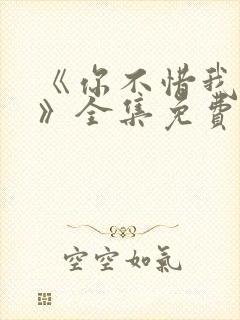 《你不惜我
》全集免費
空空如氣